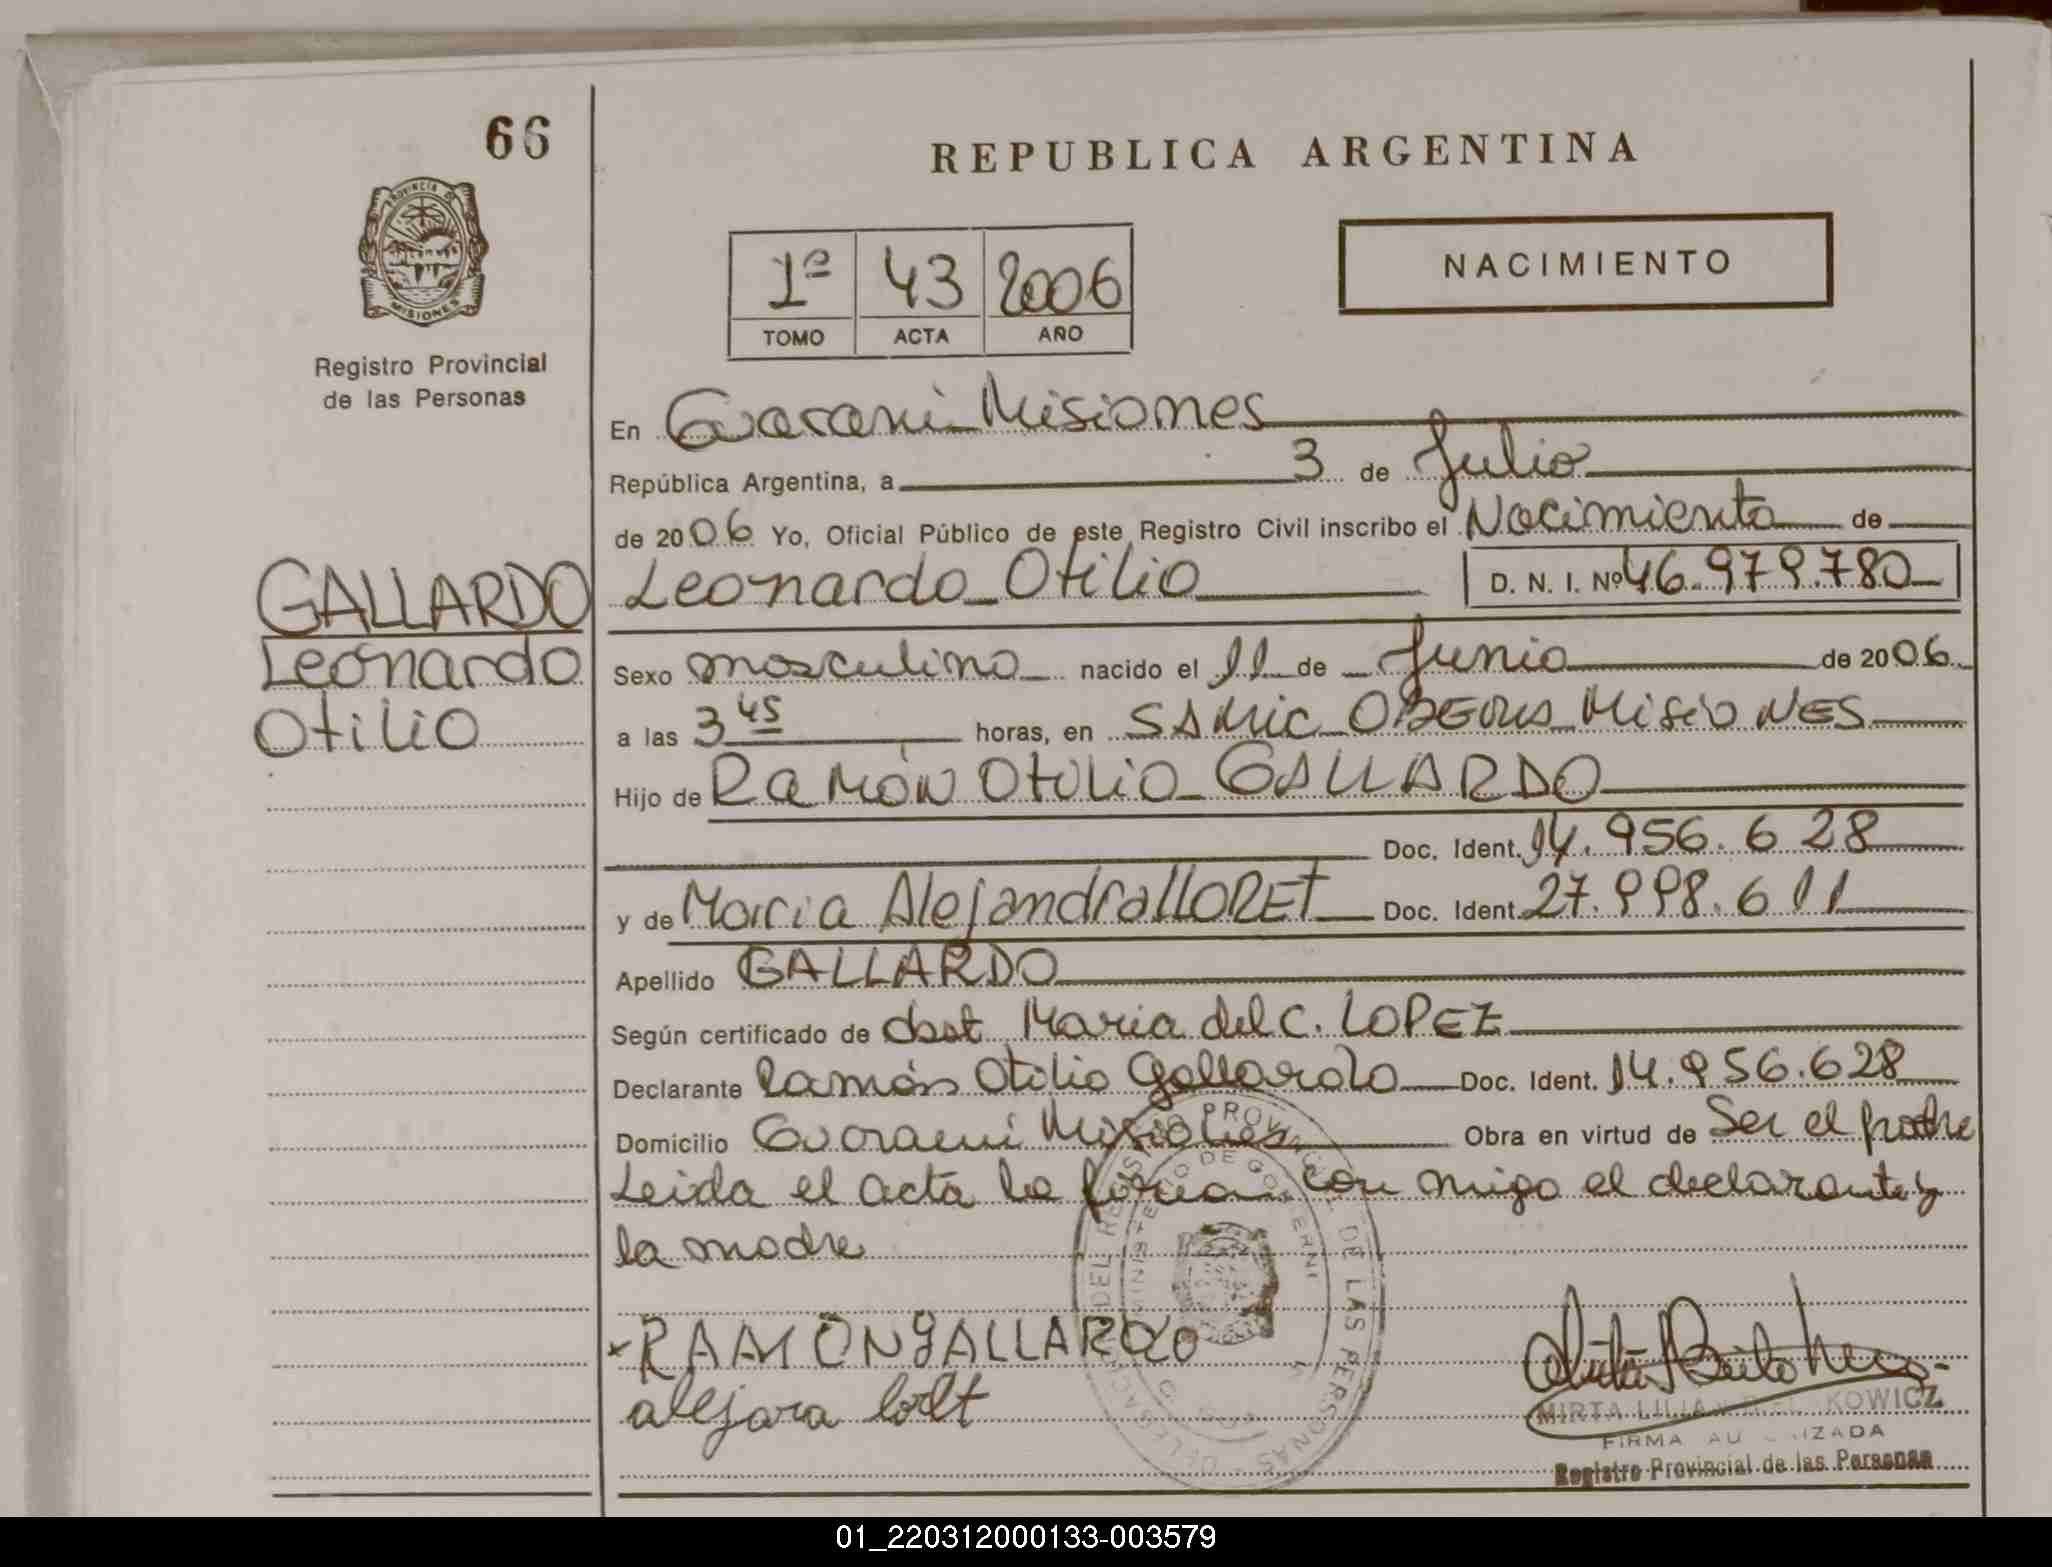 66
REPUBLICA ARGENTINA
PROVINCIA DE
MISIONES
Registro Provincial
de las Personas
1º 43 2006
TOMO ACTA AÑO
NACIMIENTO
En Guarani Misiones
República Argentina, a 3 de Julio
de 2006 Yo, Oficial Público de este Registro Civil inscribo el Nacimiento de
GALLARDO
Leonardo
Otilio
Leonardo Otilio D. N. I. Nº 46.979.780
Sexo masculino nacido el 11 de Junio de 2006
a las 3 45 horas, en SAMIC OBERA Misiones
Hijo de Ramón Otilio GALLARDO
Doc. Ident. 14.956.628
y de Maria Alejandra lloret Doc. Ident. 27.998.611
Apellido GALLARDO
Según certificado de obst Maria del C. LOPEZ
Declarante Ramón Otilio Gallardo Doc. Ident. 14.956.628
Domicilio Guarani Misiones Obra en virtud de Ser el padre
Leida el acta la firman con migo el declarante y
la madre
DELEGACION DEL REGISTRO PROVINCIAL DE LAS PERSONAS
MINISTERIO DE GOBIERNO
x RAMON GALLARDO
alejara
MIRTA
FIRMA AUTORIZADA
Registro Provincial de las Personas
01_220312000133-003579